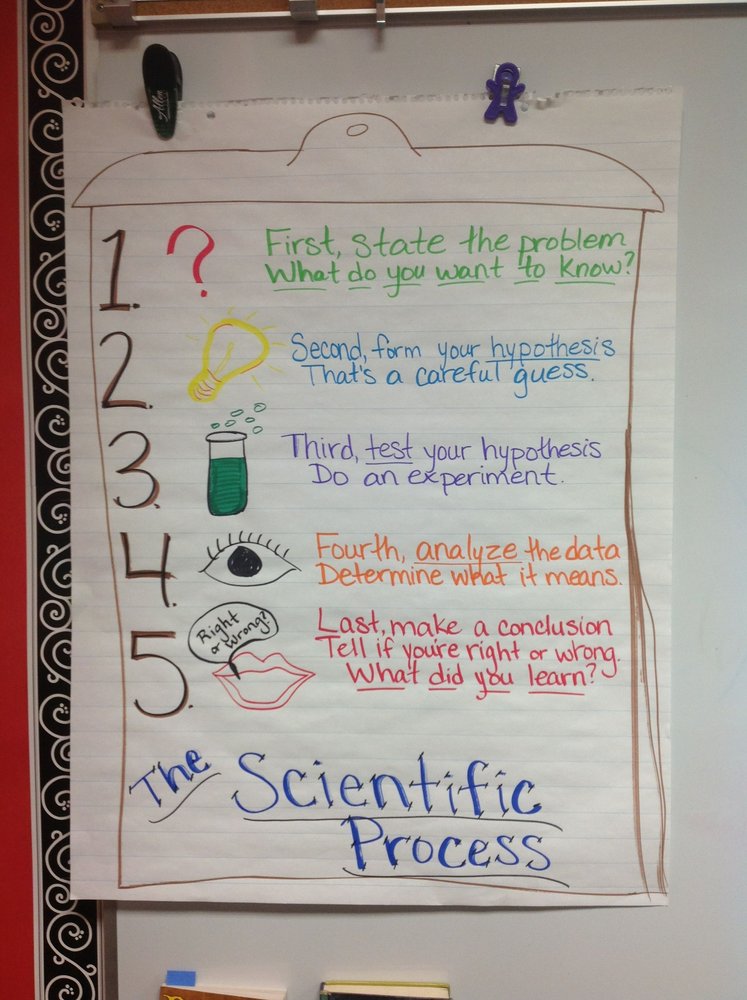 Allon
1. ? First, state the problem
What do you want to know?
2. Second, form your hypothesis
That's a careful guess.
3. Third, test your hypothesis
Do an experiment.
4. Fourth, analyze the data
Determine what it means.
5. Right or Wrong? Last, make a conclusion
Tell if you're right or wrong.
What did you learn?
The Scientific
Process